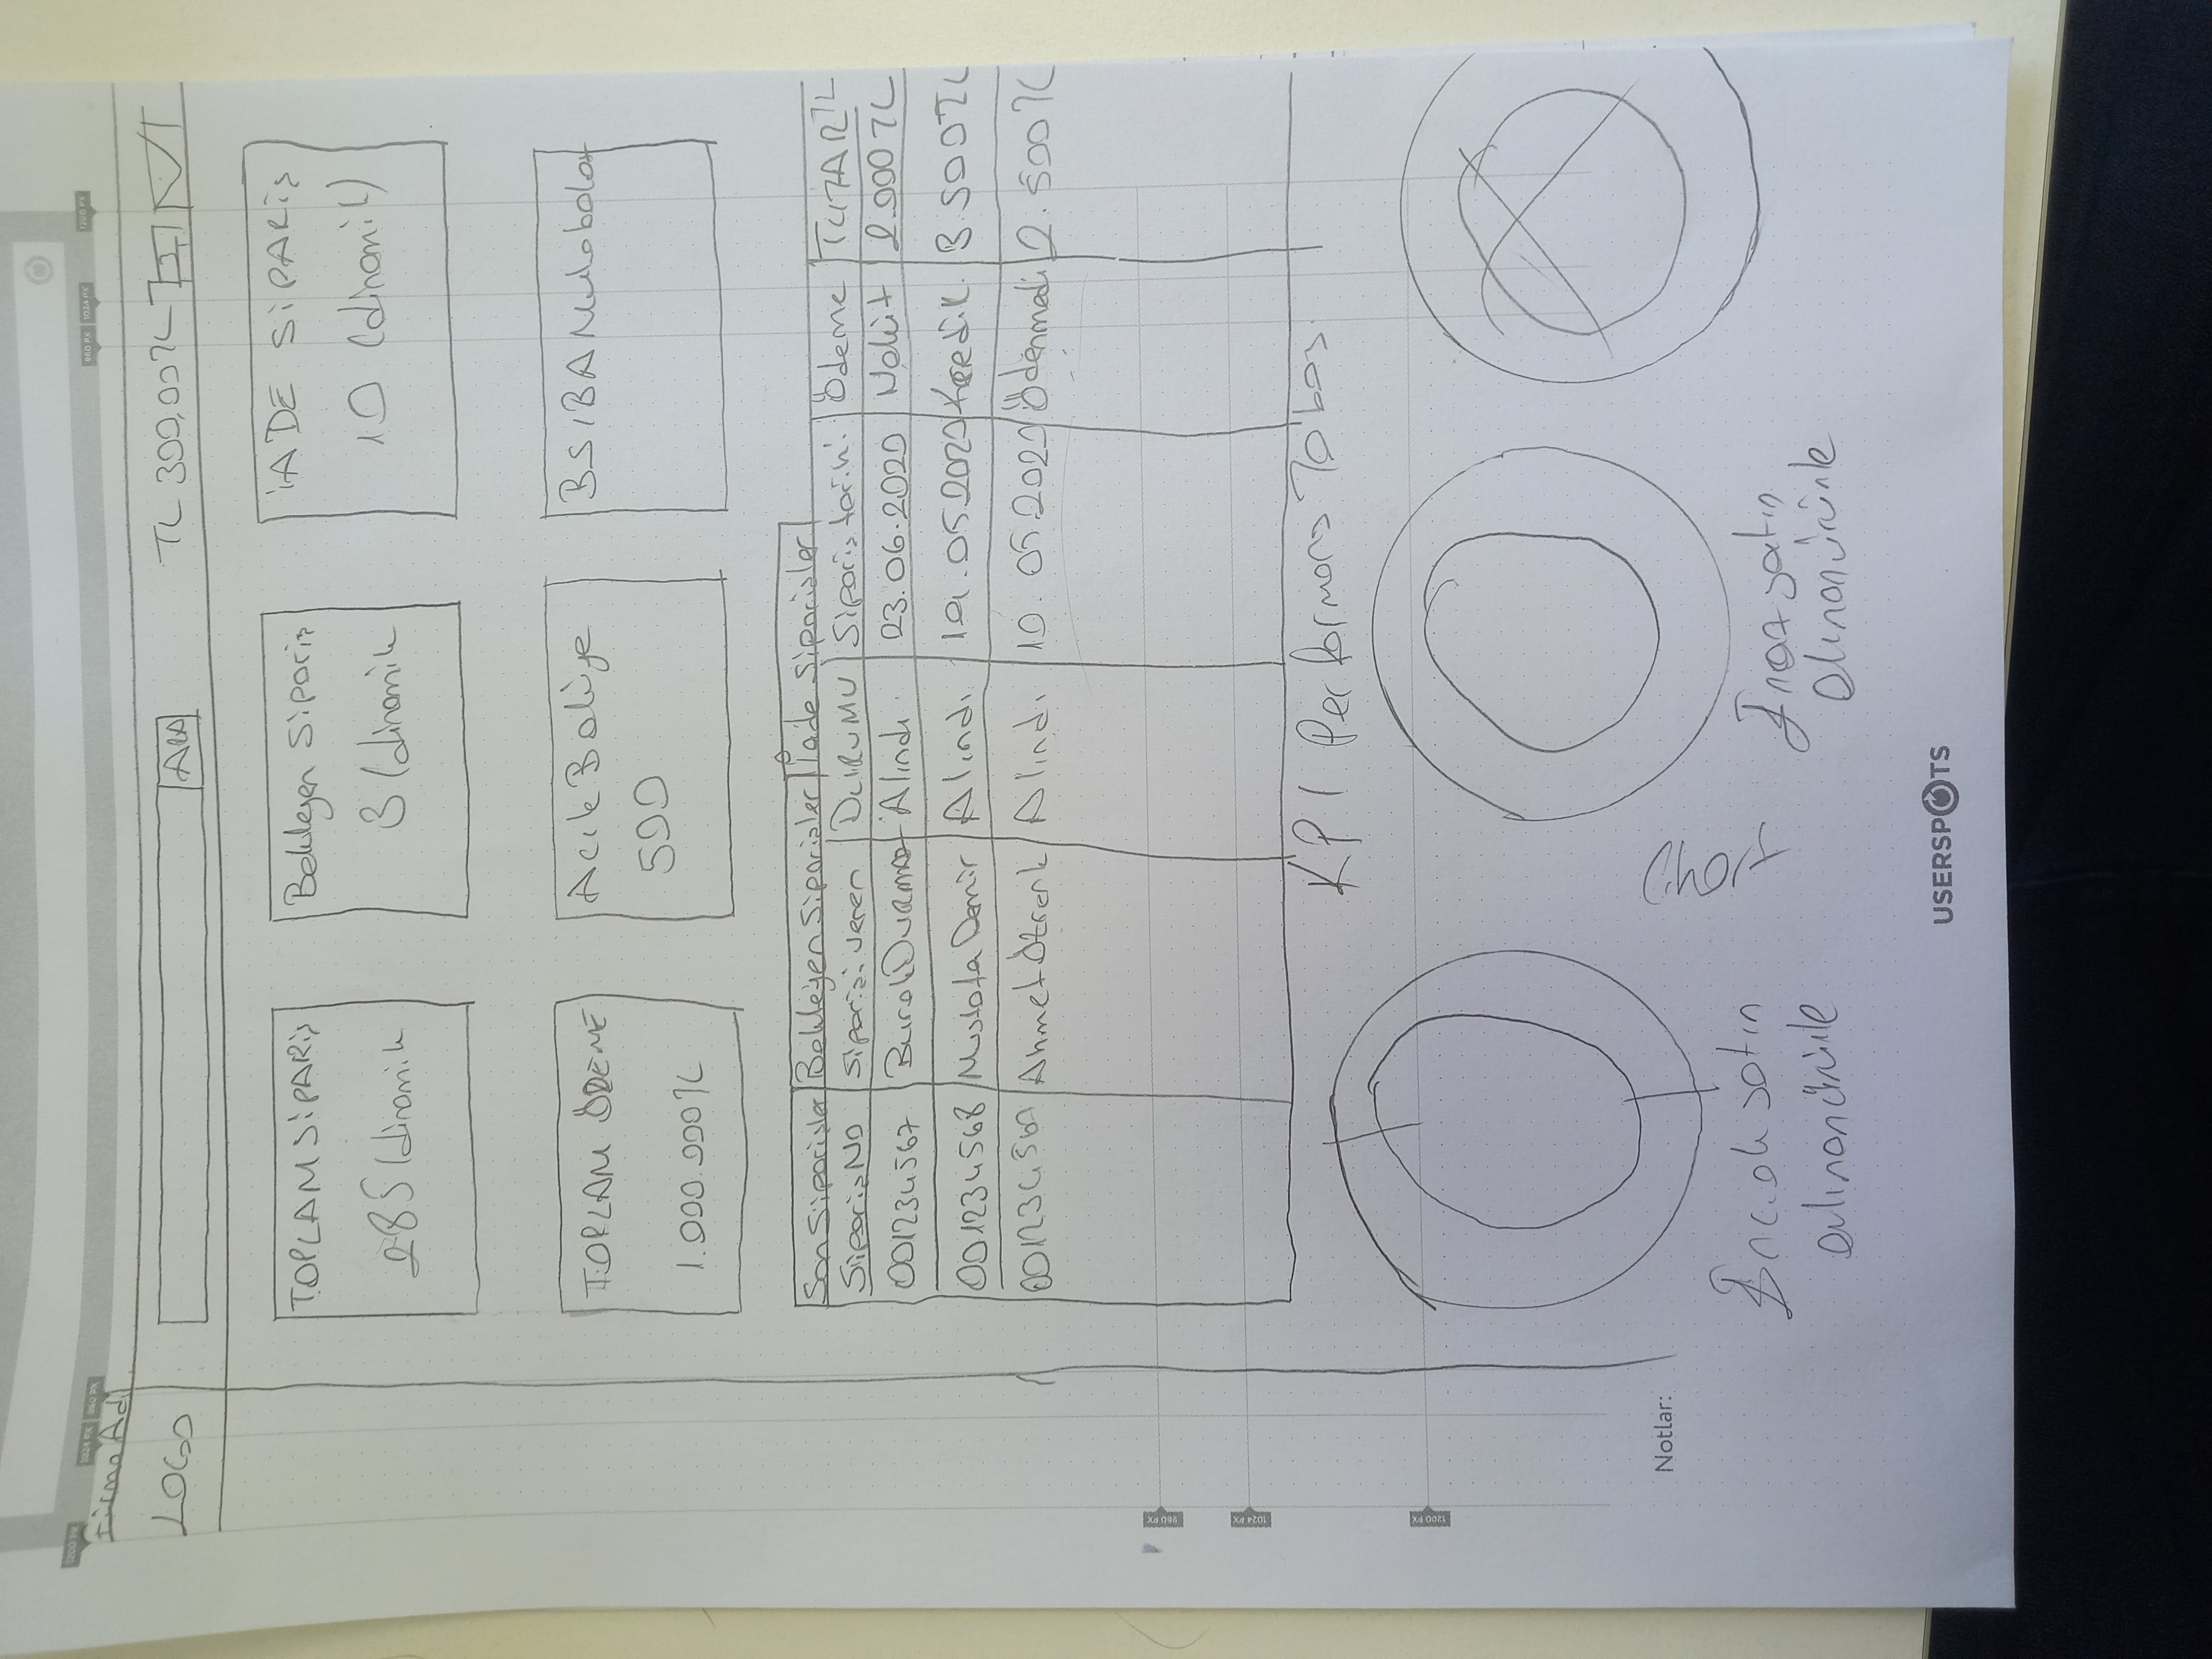 1200 PX 1024 PX 960 PX 960 PX 1024 PX 1200 PX
Firma Adı
LOGO ARA TL 300,00TL
TOPLAM SİPARİŞ Bekleyen Sipariş İADE SİPARİŞ
285 (dinamik 3 (dinamik 10 (dinamik)
TOPLAM ÖDEME Acık Bakiye BS/BA Mutabakat
1.000.000TL 500
Son Siparişler Bekleyen Siparişler İade Siparişler
Sipariş NO Siparişi veren DURUMU Sipariş tarihi Ödeme TUTAR TL
001234567 Burak Durmaz Alındı 23.06.2020 Nakit 2.000 TL
001234568 Mustafa Demir Alındı 19.05.2020 Kredi K. 3.500TL
Ahmet Alındı 10.05.2020 Ödenmedi 2.500TL
960 PX
1024 PX
KPI Performans
1200 PX
Notlar:
Chart
En çok satın
alınan ürünle
En az satın
alınan ürünle
USERSPOTS